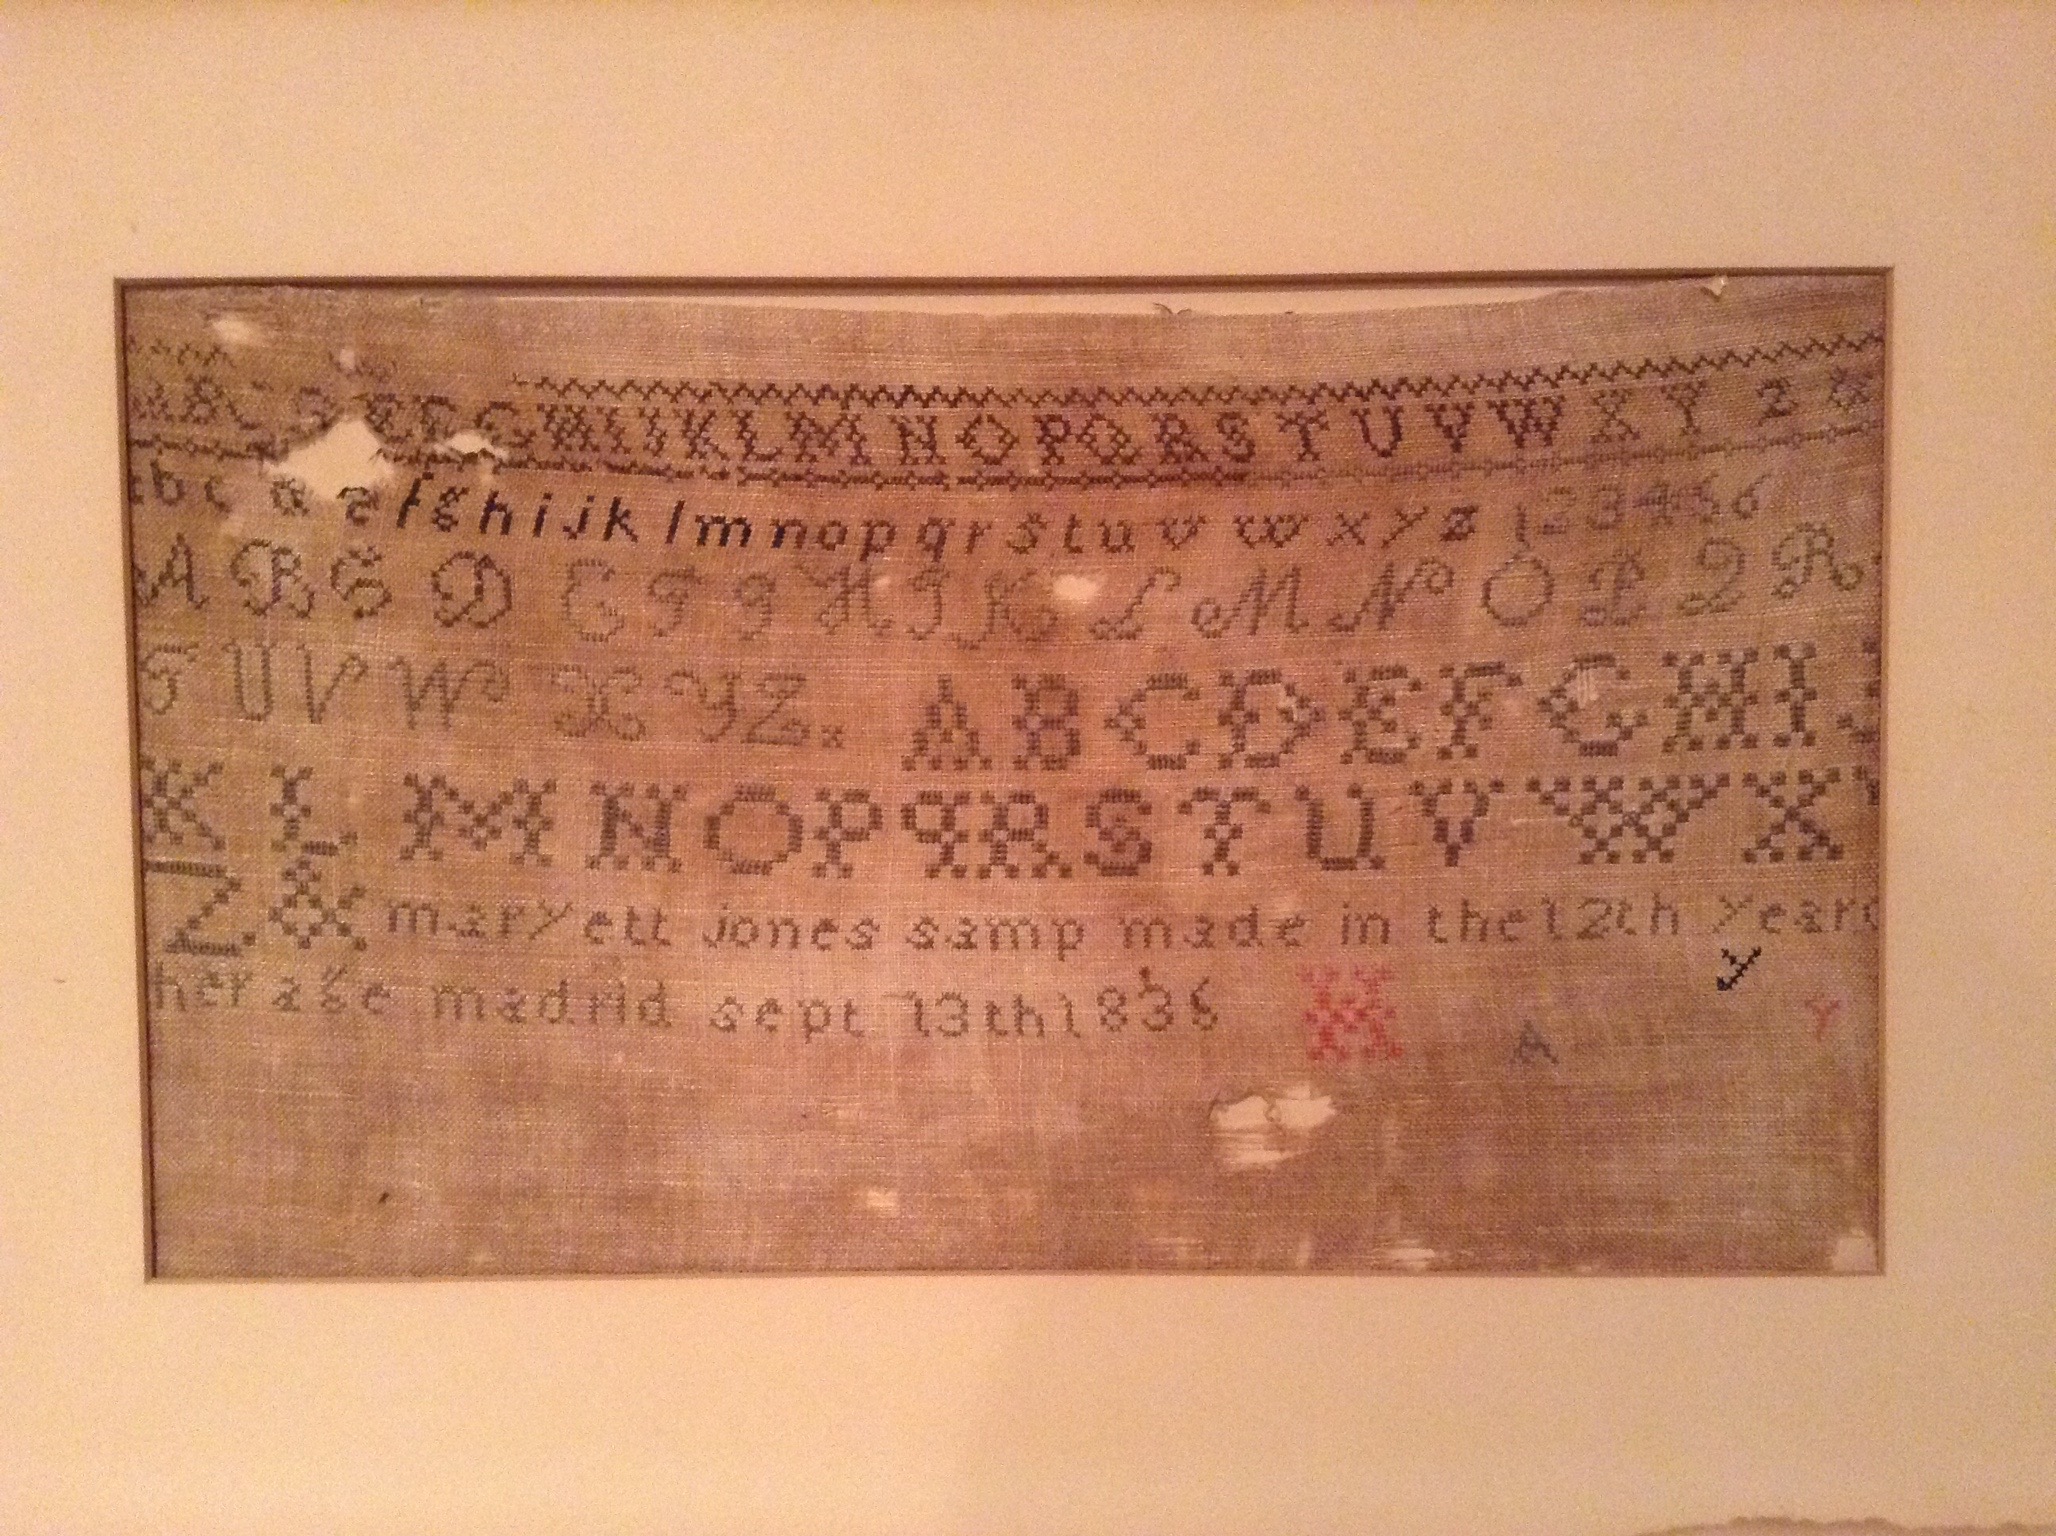 A B C D E F G H I J K L M N O P Q R S T U V W X Y Z &
b c d e f g h i j k l m n o p q r s t u v w x y z 1 2 3 4 5 6
A B C D E F G H I K L M N O P Q R
T U V W X Y Z . A B C D E F G H I J
K L M N O P q R S T U V W X
Z & maryett jones samp made in the 12th year
her age madrid sept 13th 1836 H A y y